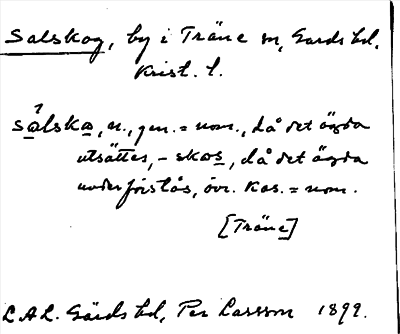 Salskog, by i Träne sn, Gärds hd.
Krist. l.
sålska, n., gen. = nom., då det ägda
utsättes, - skas, då det ägda
underförstås, övr. kas. = nom.
[Träne]
L.A.L. Gärds hd, Per Larsson 1899.